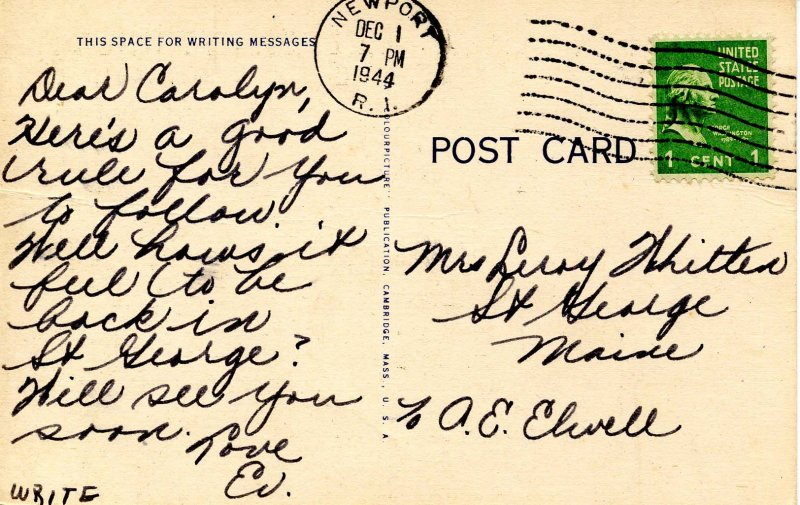 THIS SPACE FOR WRITING MESSAGES
Dear Carolyn,
Here's a good
rule for you
to follow.
Well hows it
feel to be
back in
St George?
Will see you
soon.
Love
Ev.
WRITE
NEWPORT
DEC 1
7 PM
1944
R.I.
COLOURPICTURE" PUBLICATION, CAMBRIDGE, MASS., U. S. A
UNITED
STATES
POSTAGE
GEORGE
WASHINGTON
1 CENT 1
POST CARD
Mrs Leroy Whitten
St George
Maine
To A.E. Elwell